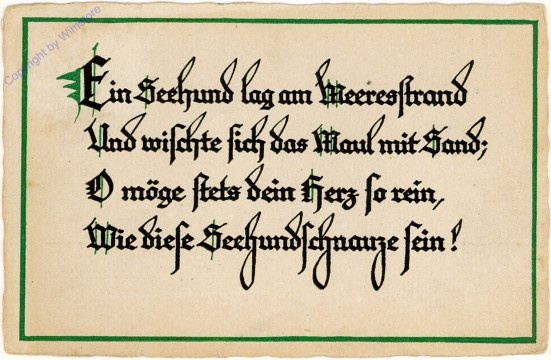 Copyright by Wimstore
Ein Seehund lag am Meeresstrand
Und wischte sich das Maul mit Sand;
O möge stets dein Herz so rein,
Wie diese Seehundschnauze sein!